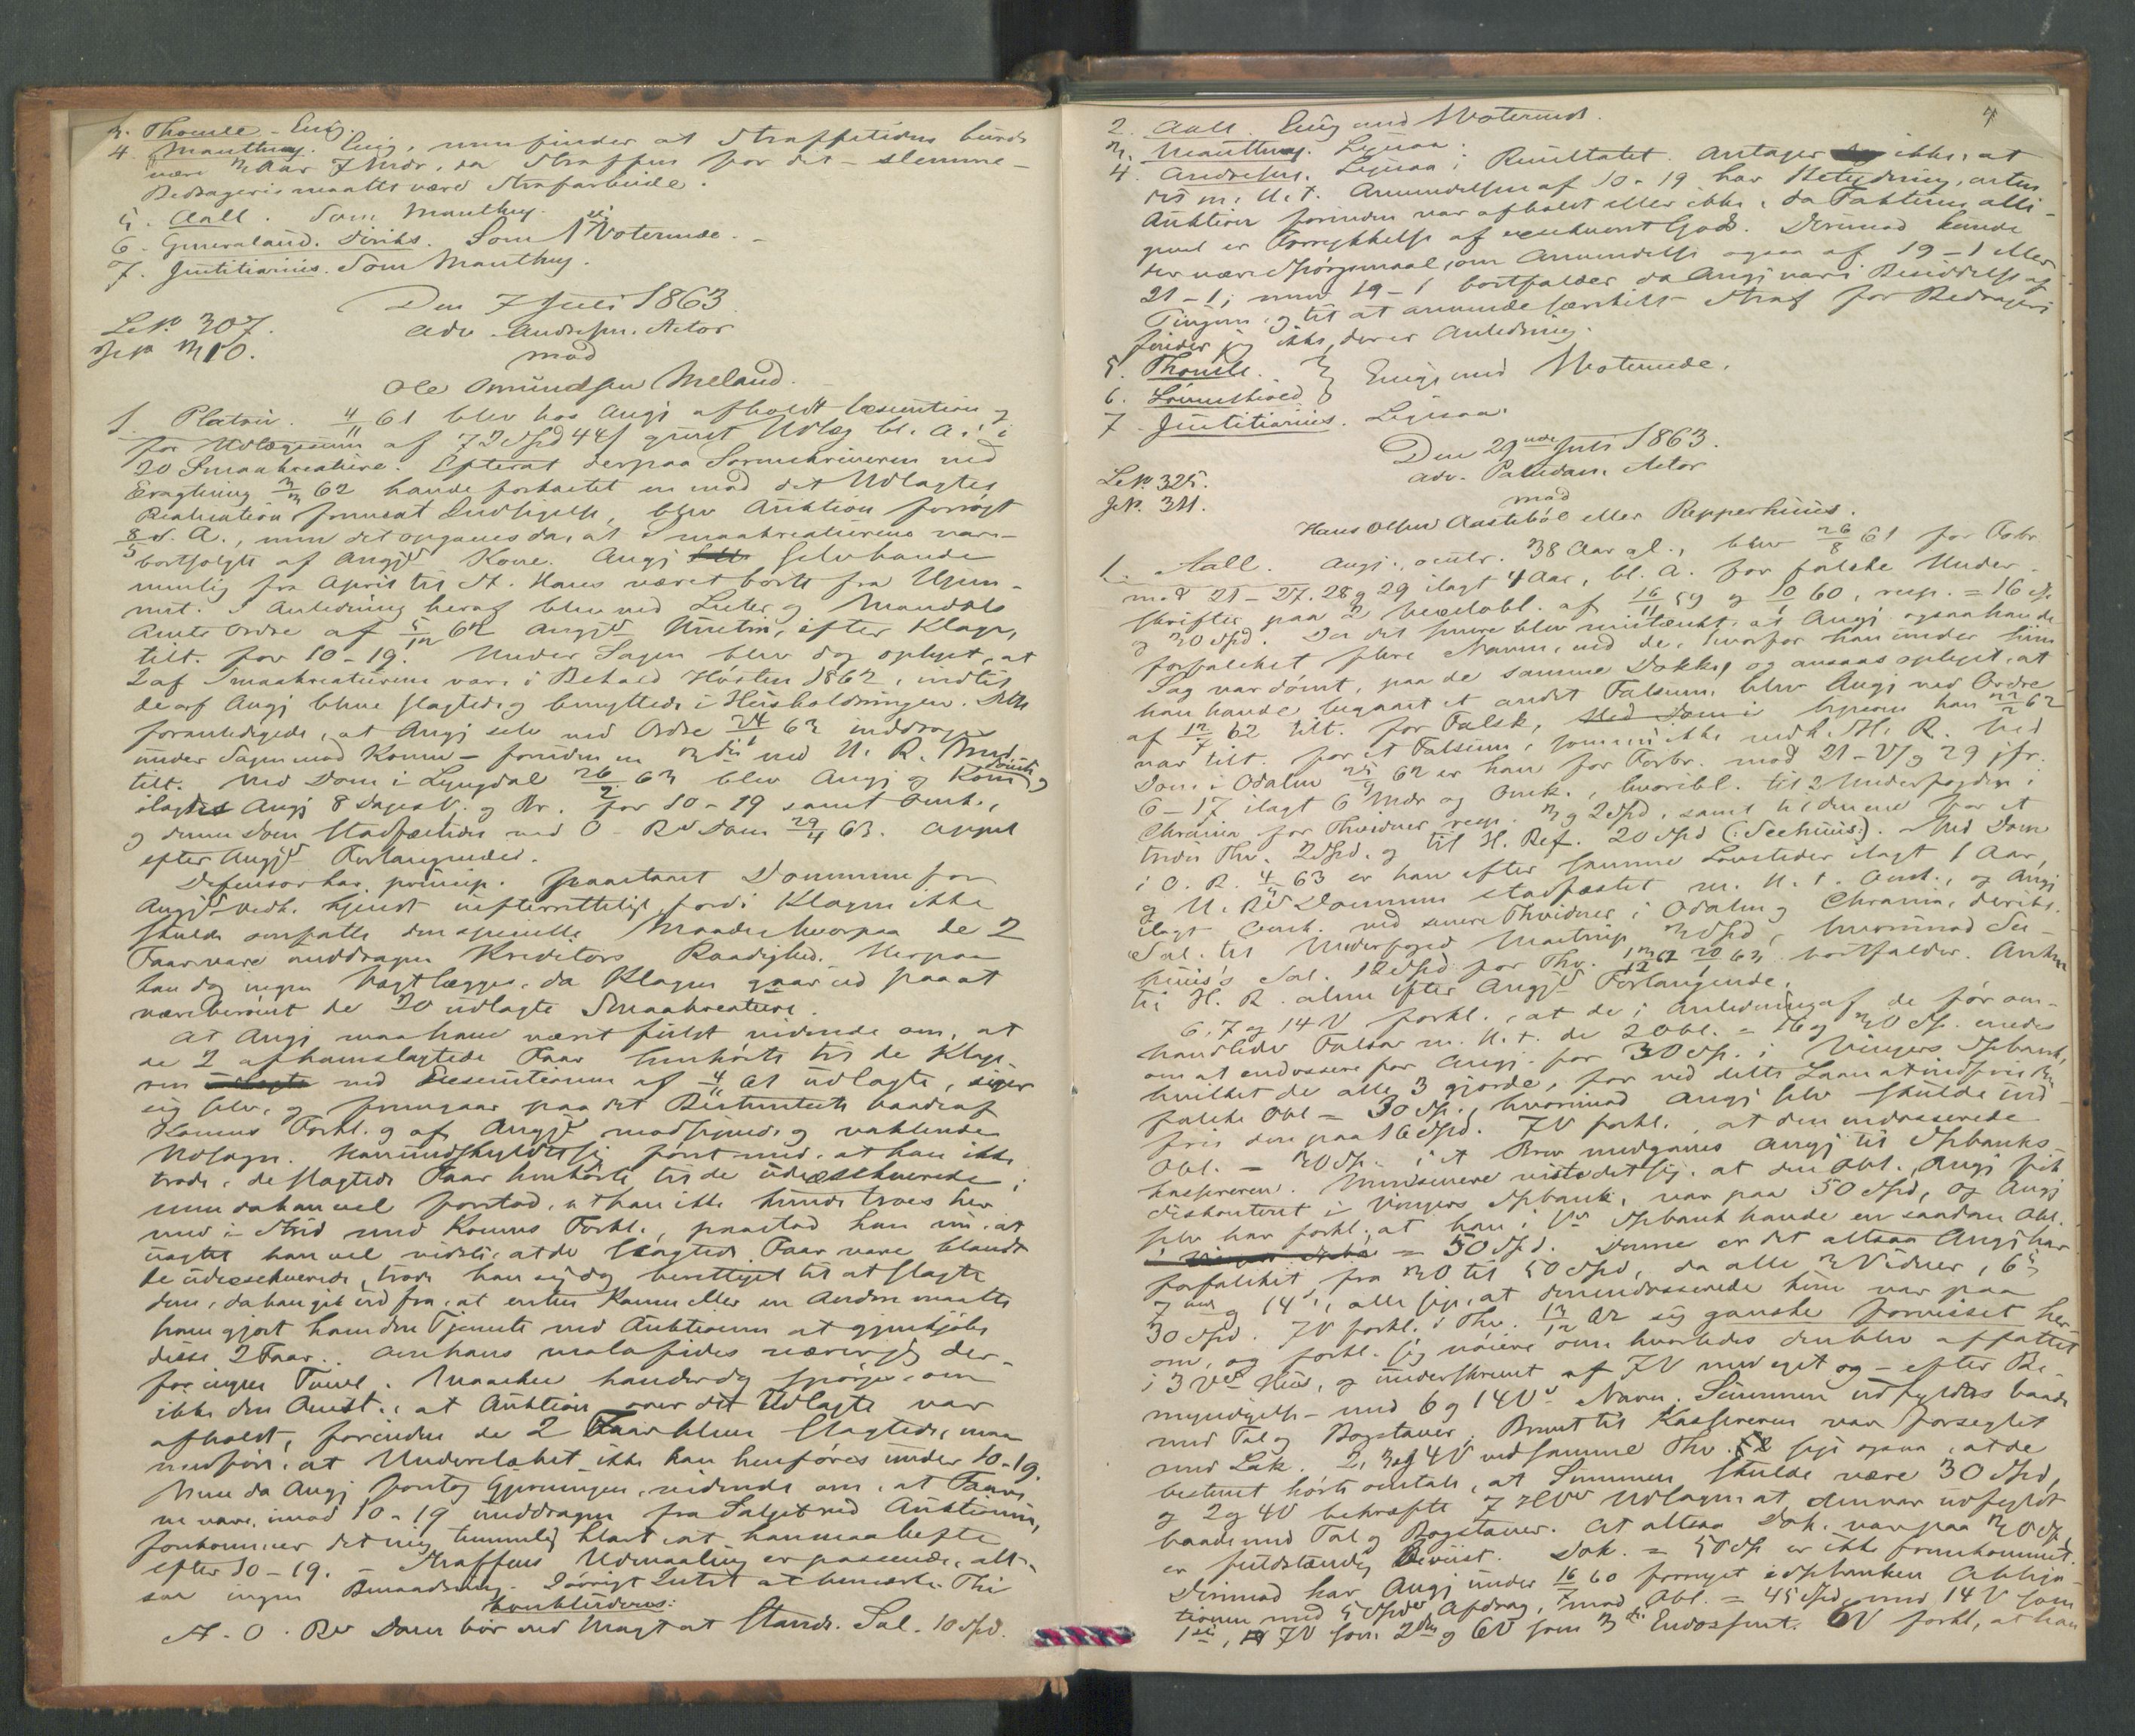 3. Thomle - Enig.
4. Manthey. Enig, men finder at Straffetiden burde
være 3 Aar 7 Mdr, da Straffen for det - slemme -
Bedrageri maatte være Strafarbeide.
5. Aall. Som Manthey.
6. Generalaud. Diriks. Som 1ste Voterende. -
7. Justitiarius. Som Manthey.
Den 7 Juli 1863.
LNo 307. Adv. Andresen. Actor
JNo 310. mod
Ole Omundsen Meland.
1. Platou. 4/11 61 blev hos Angj afholdt Execution og
for Udlægssum af 72 Spd 44 s gjort Udlæg bl. A. i
20 Smaakreature. Efterat derpaa Sorenskriveren ved
Eragtning 3/3 62 havde forkastet en mod det Udlagtes
Realisation fremsat Indsigelse, blev Auktion forsøgt
8/5 s. A., men det opgaves da, at Smaakreaturene vare
bortsolgte af Angjs Kone. Angj selv havde
nemlig fra April til St. Hans været borte fra Hjem-
met. I Anledning heraf blev ved Lister og Mandals
Amts Ordre af 5/12 62 Angjs Hustru, efter Klage,
tilt. for 10-19. Under Sagen blev dog oplyst, at
2 af Smaakreaturene vare i Behold Høsten 1862, indtil
de af Angj bleve slagtede og benyttede i Huusholdningen. Dette
foranledigede, at Angj selv ved Ordre 24/1 63 inddroges
under Sagen mod Konen - foruden en 3die ved U. R. frif.
tilt. Ved Dom i Lyngdal 26/2 63 blev Angj og Kone
ilagt Angj 8 Dages V. og Br. for 10-19 samt Omk.,
og denne Dom stadfæstedes ved O-Rs Dom 29/4 63. Appel
efter Angjs Forlangende.
Defensor har princip. paastaaet Dommene for
Angjs Vedk. kjendt uefterrettelige, fordi Klagen ikke
skulde omfatte den specielle Maade hvorpaa de 2
Faar vare unddragne Kreditors Raadighed. Herpaa
kan dog ingen Vægt lægges, da Klagen gaar ud paa at
være berøvet de 20 udlagte Smaakreature.
At Angj maa have været fuldt vidende om, at
de 2 afhamslagtede Faar henhørte til de Klage-
ren ved Executionen af 4/11 61 udlagte, siger
sig selv, og fremgaar paa det Bestemteste baade af
Konens Forkl. og af Angjs modsigende og vaklende
Udsagn. Han undskyldte sig først med, at han ikke
troede, de slagtede Faar henhørte til de udexekverede;
men da han vel forstod, at han ikke kunde troes her
med i Strid med Konens Forkl., paastod han nu, at
uagtet han vel vidste, at de slagtede Faar vare blandt
de udexekverede, troede han sig dog berettiget til at slagte
dem, da han gik ud fra, at enten Konen eller en Anden maatte
have gjort ham den Tjeneste ved Auktionen at gjenkjøbe
disse 2 Faar. Om hans mala fides nærer jeg der-
for ingen Tvivl. Maaskee kan der dog spørges, om
ikke den Omst., at Auktion over det Udlagte var
afholdt, forinden de 2 Faar bleve slagtede, maa
medføre, at Underslæbet ikke kan henføres under 10-19.
Men da Angj foretog Gjerningen, vidende om, at Faare-
ne vare, imod 10-19 unddragne fra Salget ved Auktionen,
forekommer det mig temmelig klart, at han maa hefte
efter 10-19. - Straffens Udmaaling er passende, alt-
saa ingen Benaadning. Iøvrigt Intet at bemærke. Thi
konkluderes:
H. O. Rs Dom bør ved Magt at stande. Sal. 10 Spd.
7
2. Aall. Enig med 1 Voterende.
3. Manthey. Ligesaa.
4. Andresen. Ligesaa i Resultatet. Antager ikke, at
det m. H. t. Anvendelsen af 10-19 har Betydning, enten
Auktion forinden var afholdt eller ikke, da Faktum alli-
gevel er Forrykkelse af exekveret Gods. Derimod kunde
der være Spørgsmaal om Anvendelse ogsaa af 19-1 eller
21-1; men 19-1 bortfalder da Angj var i Besiddelse af
Tingene, og til at anvende særskilt Straf for Bedrageri
finder jeg ikke, der er Anledning.
5. Thomle. } Enige med 1 Voterende.
6. Løvenskiold }
7. Justitiarius. Ligesaa.
Den 29nde Juli 1863.
LNo 325. Adv. Paludan. Actor
JNo 311. mod
Hans Olsen Aastebøl eller Repperhuus.
1. Aall. Angj., omtr. 38 Aar gl., blev 26/8 61 for Forbr.
mod 21-27. 28 og 29 ilagt 4 Aar, bl. A. for falske Under-
skrifter paa 2 Vexelobl. af 16/11 59 og 10/1 60, resp. = 16 Sp.
og 30 Spd. Da det senere blev mistænkt, at Angj ogsaa havde
forfalsket flere Navne, end de, hvorfor han under hiin
Sag var dømt, paa de samme Dokk., og ansaaes oplyst, at
han havde begaaet et andet Falsum, blev Angj ved Ordre
af 12/7 62 tilt. for Falsk, ligesom han 22/2 62
var tilt. for et Falsum, som nu ikke vedk. H. R. Ved
Dom i Odalen 25/9 62 er han for Forbr. mod 21-1/ og 29 jfr.
6-17 ilagt 6 Mdr og Omk., hvoribl. til 2 Underfogder i
Chrania for Thvidner resp. 3 og 2 Spd, samt til denne for et
tredie Thv. 2 Spd. og til H. Ref. 20 Spd (: Seehuus:). Ved Dom
i O. R. 4/5 63 er han efter samme Lovsteder ilagt 1 Aar,
og U. Rs Dommen stadfæstet m. H. t. Omk., og Angj
ilagt Omk. ved senere Thvidner i Odalen og Chrania, deribl.
Sal. til Underfoged Mostrup 3 Spd, hvorimod See-
huus's Sal. 12 Spd for Thv. 13/12 62 20/1 63 bortfalder. Anket
til H. R. alene efter Angjs Forlangende.
6, 7 og 14 V forkl., at de i Anledning af de før om-
handlede Falsa m. H. t. de 2 Obl. = 16 og 30 Sp. enedes
om at endossere for Angj. for 30 Sp. i Vingers Spbank,
hvilket de alle 3 gjorde, for ved dette Laan at indfrie den
falske Obl = 30 Sp., hvorimod Angj selv skulde ind-
frie den paa 16 Spd. 7 V forkl., at den endosserede
Obl. = 30 Sp. i et Brev medgaves Angj til Spbanks-
kassereren. Men senere viste det sig, at den Obl., Angj fik
diskonteret i Vingers Spbank, var paa 50 Spd, og Angj
selv har forkl., at han i Vs Spbank havde en saadan Obl.
= 50 Spd. Denne er det altsaa Angj har
forfalsket fra 30 til 50 Spd, da alle 3 Vidner, 6te
7nde og 14de, alle sige, at den endosserede kun var paa
30 Spd. 7 V forkl. i Thv. 13/12 62 sig ganske forvisset her-
om, og forkl. sig nøiere om hvorledes den blev affattet
i 3 Vs Huus, og underskrevet af 7 V med eget og - efter Be-
myndigelse - med 6 og 14 Vs Navn. Summen udfyldtes baade
med Tal og Bogstaver. Brevet til Kassereren var forseglet
med Lak. 2, 3 og 4 V ved samme Thv. sige ogsaa, at de
bestemt hørte omtale, at Summen skulde være 30 Spd,
og 2 og 4 V bekræfte 7 Vs Udsagn at den var udfyldt
baade med Tal og Bogstaver. At altsaa Dok. var paa 30 Sp.
er fuldstændig beviist. Dok. = 50 Sp er ikke fremkommet.
Derimod har Angj under 16/7 60 fornyet i Spbanken Obliga-
tionen med 5 Spds Afdrag, mod Obl. = 45 Spd, med 14 V som
1ste, 7 V som 2den og 6 V som 3die Endossent. 6 V forkl, at han